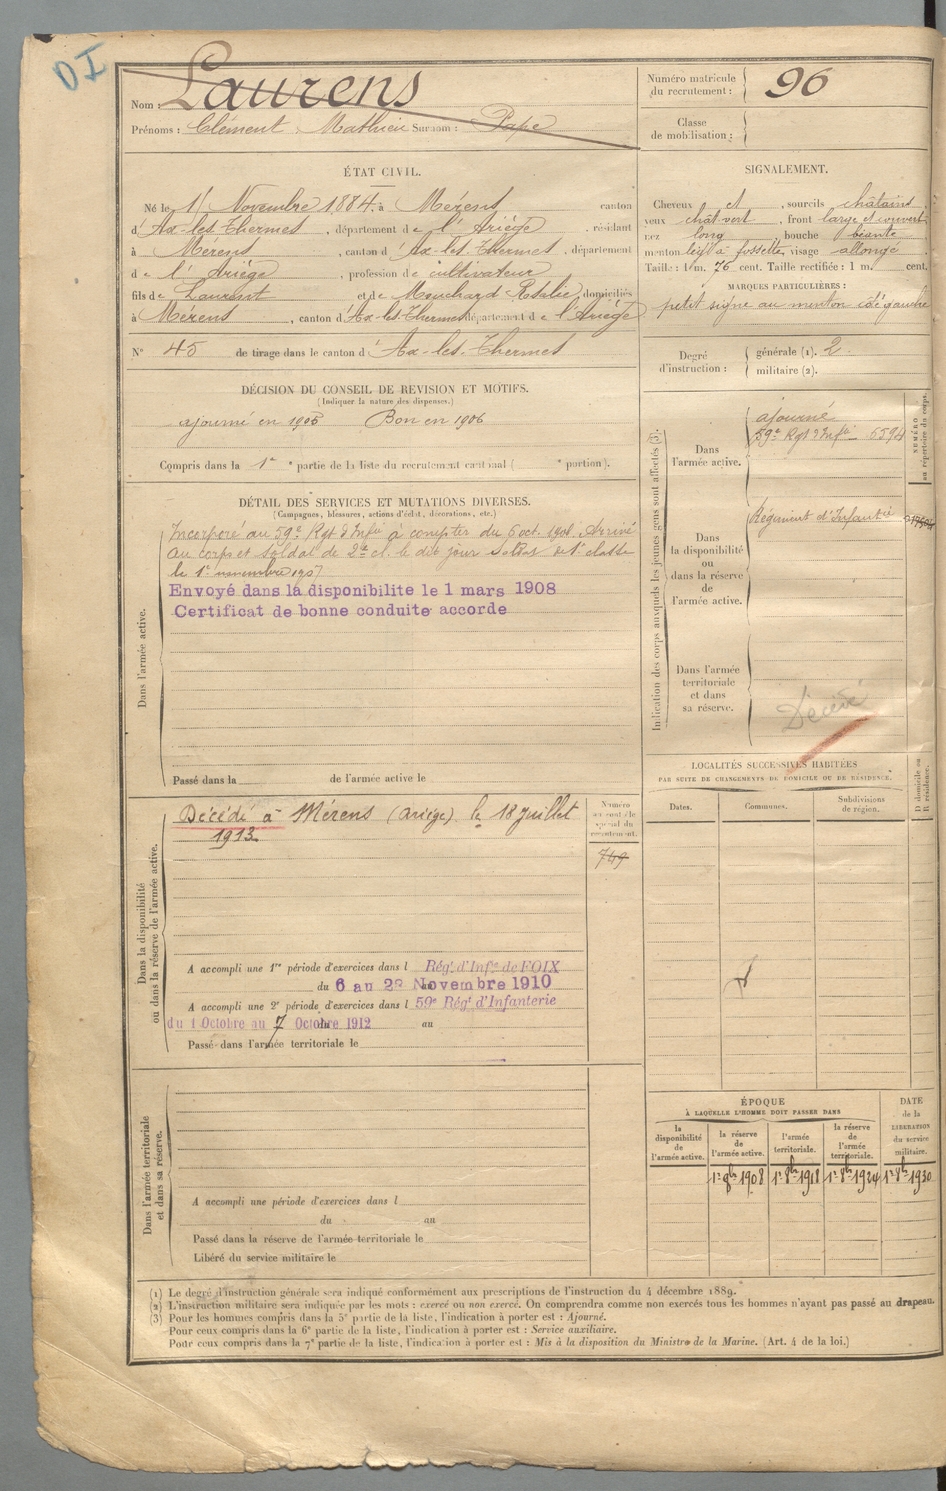 DI
Nom : Laurens
Prénoms : Clément Mathieu Surnom : Pape
Numéro matricule du recrutement : 96
Classe de mobilisation :
ÉTAT CIVIL.
Né le 1 Novembre 1884, à Mérens canton
d'Ax-les-Thermes, département de l'Ariège, résidant
à Mérens, canton d'Ax-les-Thermes, département
de l'Ariège, profession de cultivateur
fils de Laurent et de Rosalie, domiciliés
à Mérens, canton d'Ax-les-Thermes département de l'Ariège
N° 45 de tirage dans le canton d'Ax-les-Thermes
SIGNALEMENT.
Cheveux et, sourcils châtains
yeux chât-vert, front large et couvert
nez long, bouche béante
menton à fossette, visage allongé
Taille : 1 m. 76 cent. Taille rectifiée : 1 m. cent.
MARQUES PARTICULIÈRES :
petit signe au menton côté gauche
Degré d'instruction : générale (1). 2.
militaire (2).
DÉCISION DU CONSEIL DE REVISION ET MOTIFS.
(Indiquer la nature des dispenses.)
ajourné en 1905 Bon en 1906
Compris dans la 1re partie de la liste du recrutement cantonal ( e portion).
DÉTAIL DES SERVICES ET MUTATIONS DIVERSES.
(Campagnes, blessures, actions d'éclat, décorations, etc.)
Dans l'armée active.
Incorporé au 59e Rgt d'Infie à compter du 6 oct. 1906. Arrivé
au corps et soldat de 2e cl. le dit jour Soldat de 1e classe
le 1e novembre 1907
Envoyé dans la disponibilite le 1 mars 1908
Certificat de bonne conduite accorde
Passé dans la de l'armée active le
Indication des corps auxquels les jeunes gens sont affectés (3).
NUMÉRO au répertoire du corps.
Dans l'armée active.
ajourné
59e Rgt d'Infie 6594
Dans la disponibilité ou dans la réserve de l'armée active.
Régiment d'Infanterie
Dans l'armée territoriale et dans sa réserve.
Décédé
LOCALITÉS SUCCESSIVES HABITÉES
PAR SUITE DE CHANGEMENTS DE DOMICILE OU DE RÉSIDENCE.
Dates.
Communes.
Subdivisions de région.
D domicile ou R résidence.
Dans la disponibilité ou dans la réserve de l'armée active.
Décédé à Mérens (Ariège) le 18 juillet
1913.
749
A accompli une 1re période d'exercices dans l Régt d'Infie de FOIX
du 6 au 28 Novembre 1910
A accompli une 2e période d'exercices dans l 59e Régt d'Infanterie
du 1 Octobre au 7 Octobre 1912 au
Passé dans l'armée territoriale le
Dans l'armée territoriale et dans sa réserve.
A accompli une période d'exercices dans l
du au
Passé dans la réserve de l'armée territoriale le
Libéré du service militaire le
ÉPOQUE
À LAQUELLE L'HOMME DOIT PASSER DANS
la disponibilité de l'armée active.
la réserve de l'armée active.
l'armée territoriale.
la réserve de l'armée territoriale.
DATE de la LIBÉRATION du service militaire.
1er 8bre 1908 1er 8bre 1918 1er 8bre 1924 1er 8bre 1930
(1) Le degré d'instruction générale sera indiqué conformément aux prescriptions de l'instruction du 4 décembre 1889.
(2) L'instruction militaire sera indiquée par les mots : exercé ou non exercé. On comprendra comme non exercés tous les hommes n'ayant pas passé au drapeau.
(3) Pour les hommes compris dans la 5e partie de la liste, l'indication à porter est : Ajourné.
Pour ceux compris dans la 6e partie de la liste, l'indication à porter est : Service auxiliaire.
Pour ceux compris dans la 7e partie de la liste, l'indication à porter est : Mis à la disposition du Ministre de la Marine. (Art. 4 de la loi.)